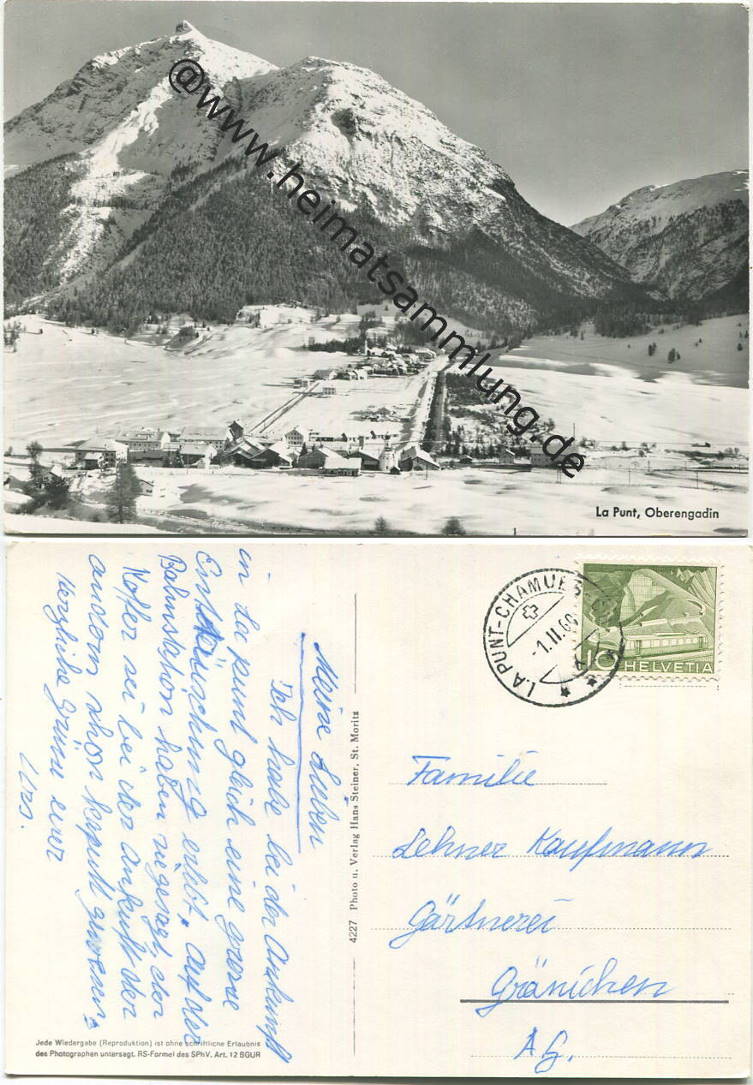 @www.heimatsammlung.de
La Punt, Oberengadin
Meine Lieben
Ich habe bei der Ankunft
in La punt gleich eine grosse
Enttäuschung erlebt. Auf der
Bahnstation haben sie gesagt der
Koffer sei bei der ankunft der
andern schon kaputt gewesen.
Herzliche Grüsse euer
Urs.
4227 Photo u. Verlag Hans Steiner, St. Moritz
LA PUNT-CHAMUES
-1.II.60
10 HELVETIA
Familie
Lehner Kaufmann
Gärtnerei
Gränichen
AG.
Jede Wiedergabe (Reproduktion) ist ohne schriftliche Erlaubnis
des Photographen untersagt. RS-Formel des SPhV. Art. 12 BGUR